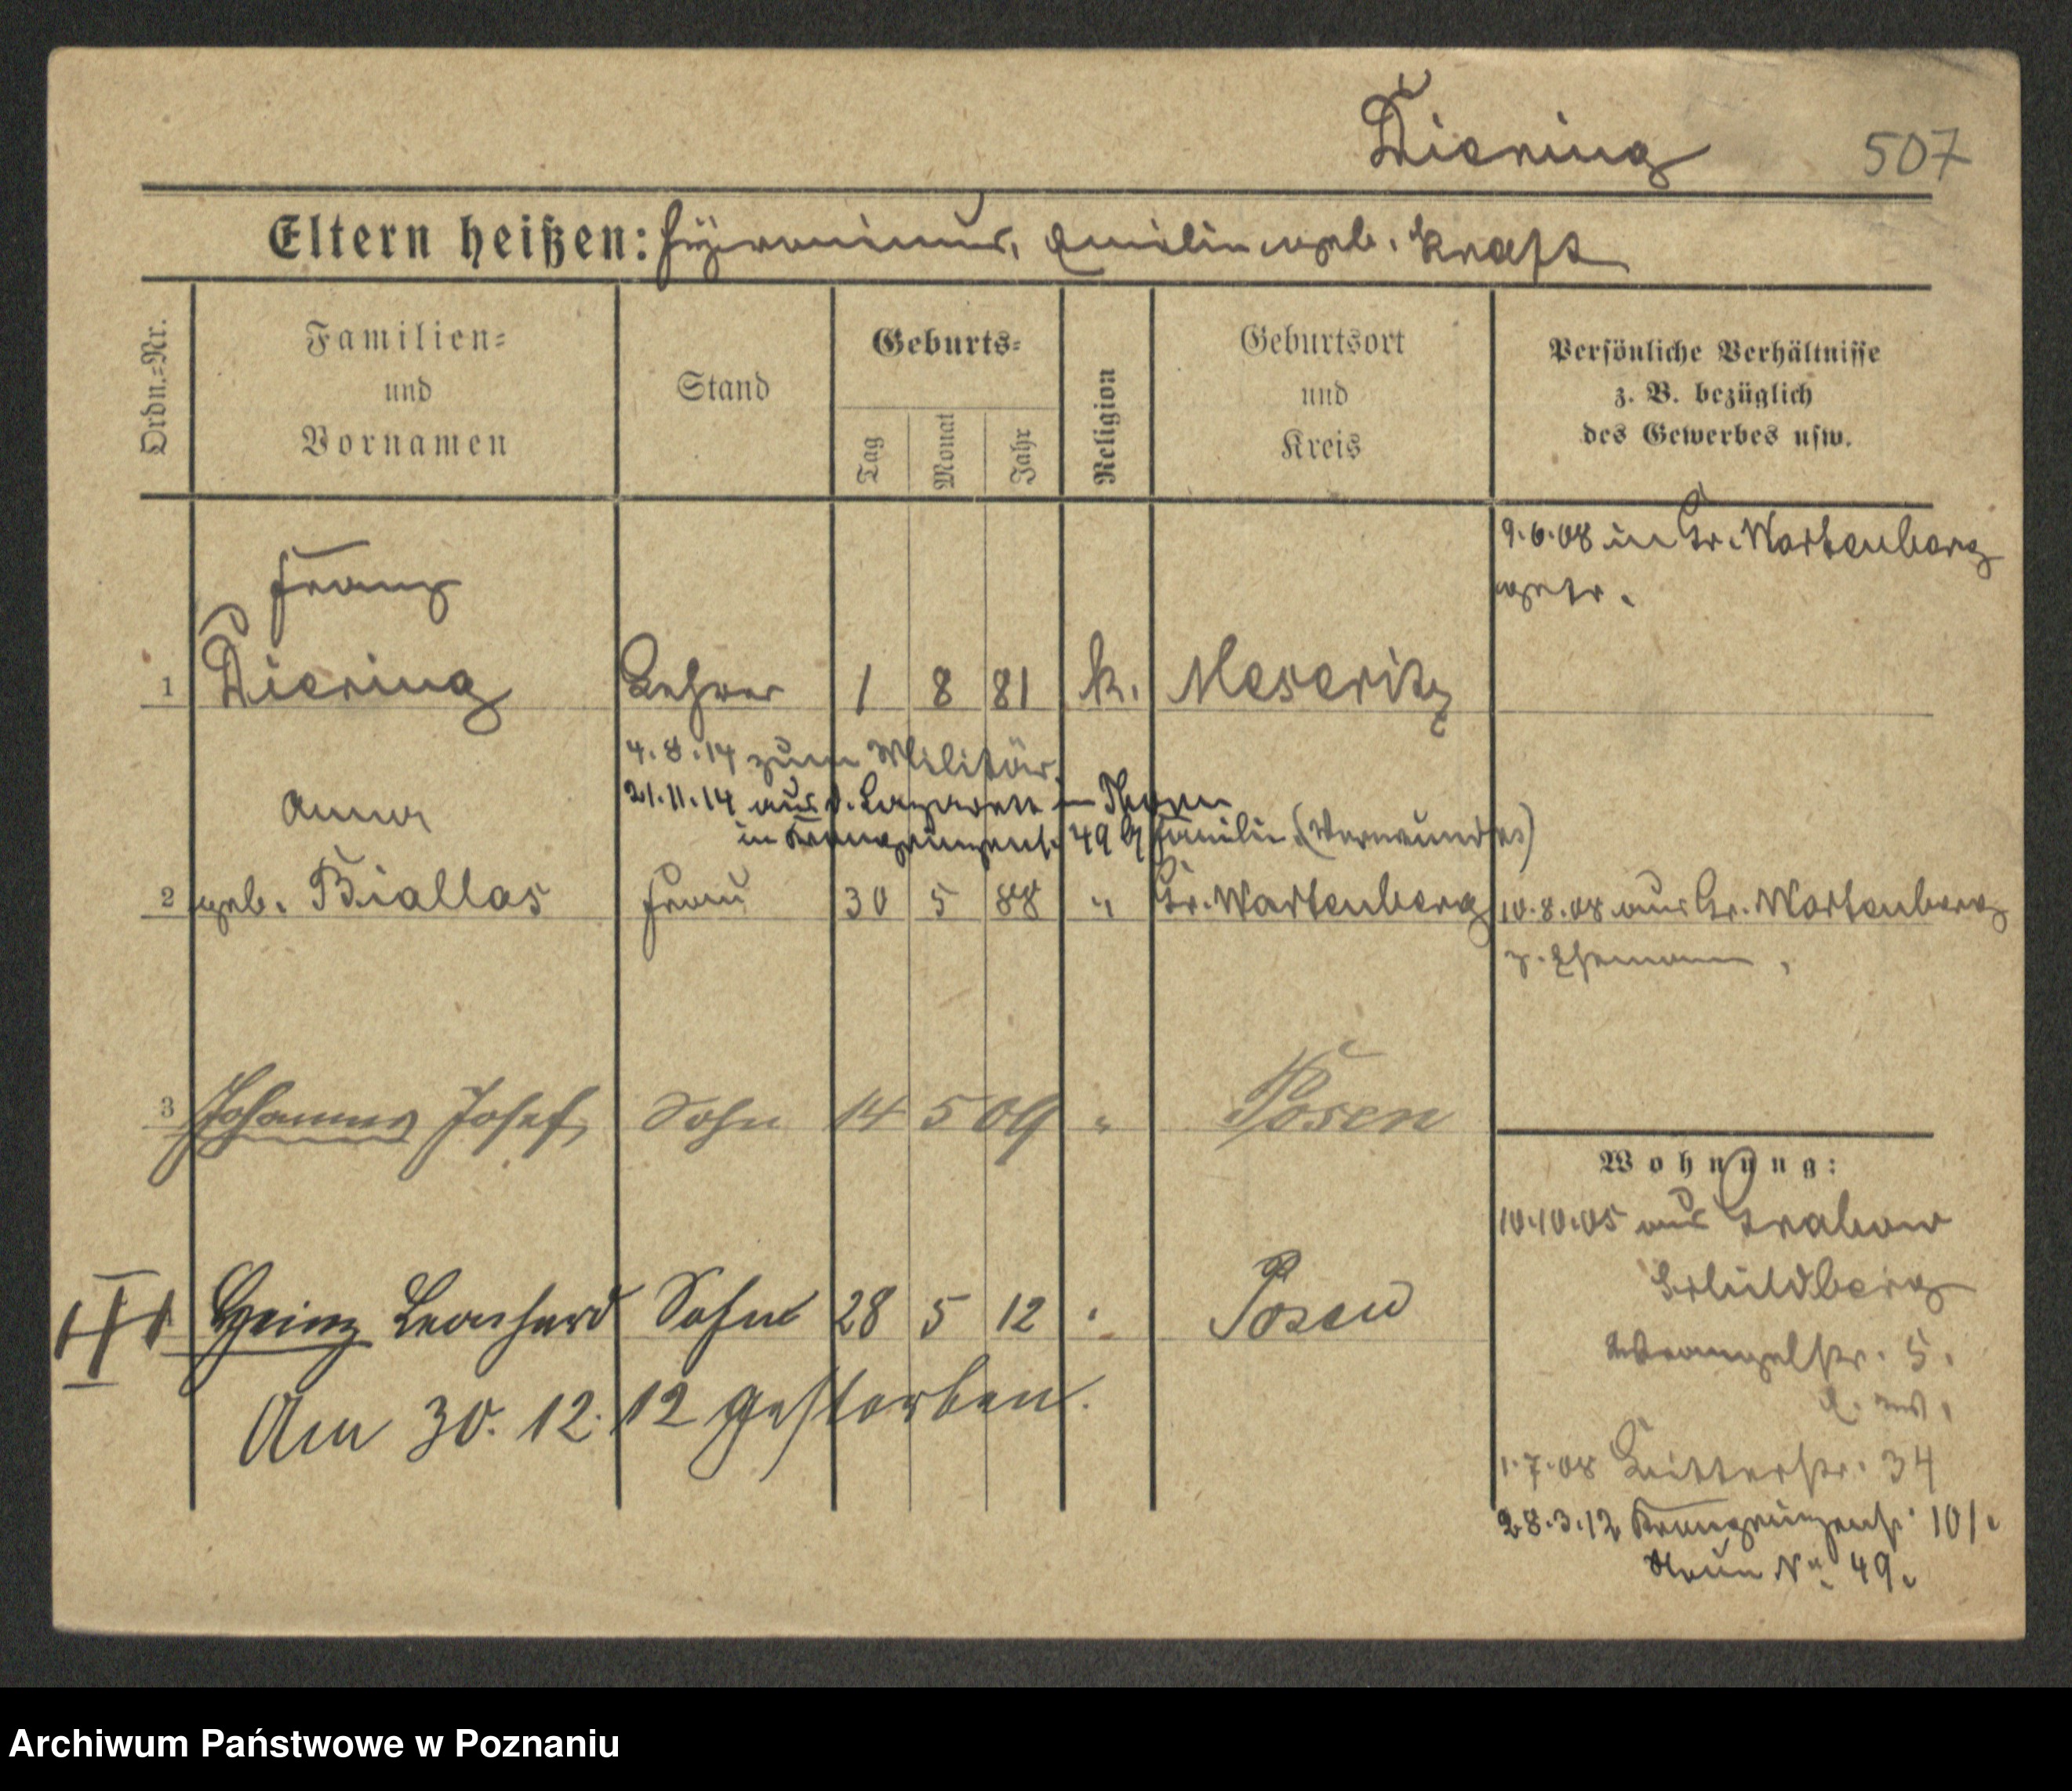 Diering 507
Eltern heißen: Hyronimus, Emilie geb. Kraft
Ordn.=Nr.
Familien=
und
Vornamen
Stand
Geburts=
Tag
Monat
Jahr
Religion
Geburtsort
und
Kreis
Persönliche Verhältnisse
z. B. bezüglich
des Gewerbes usw.
9.6.08 in Gr. Wartenberg
getr.
Franz
1 Diering Lehrer 1 8 81 k. Meseritz
4.8.14 zum Militär.
21.11.14 aus d. Lazarett in Thorn
in Kronprinzenstr. 49 z Familie (Verwundet)
Anna
2 geb. Biallas Frau 30 5 88 " Gr. Wartenberg 10.8.08 aus Gr. Wartenberg
z. Ehemann.
3 Johannes Josef Sohn 14 5 09 " Posen
Wohnung:
10.10.05 aus Grabow
Schildberg
Wrangelstr. 5.
1.7.08 Ritterstr. 34
Heinz Leonhard Sohn 28 5 12 " Posen
Am 30. 12. 12 gestorben.
28.3.12 Kronprinzenstr. 101.
Neue No. 49.
Archiwum Państwowe w Poznaniu